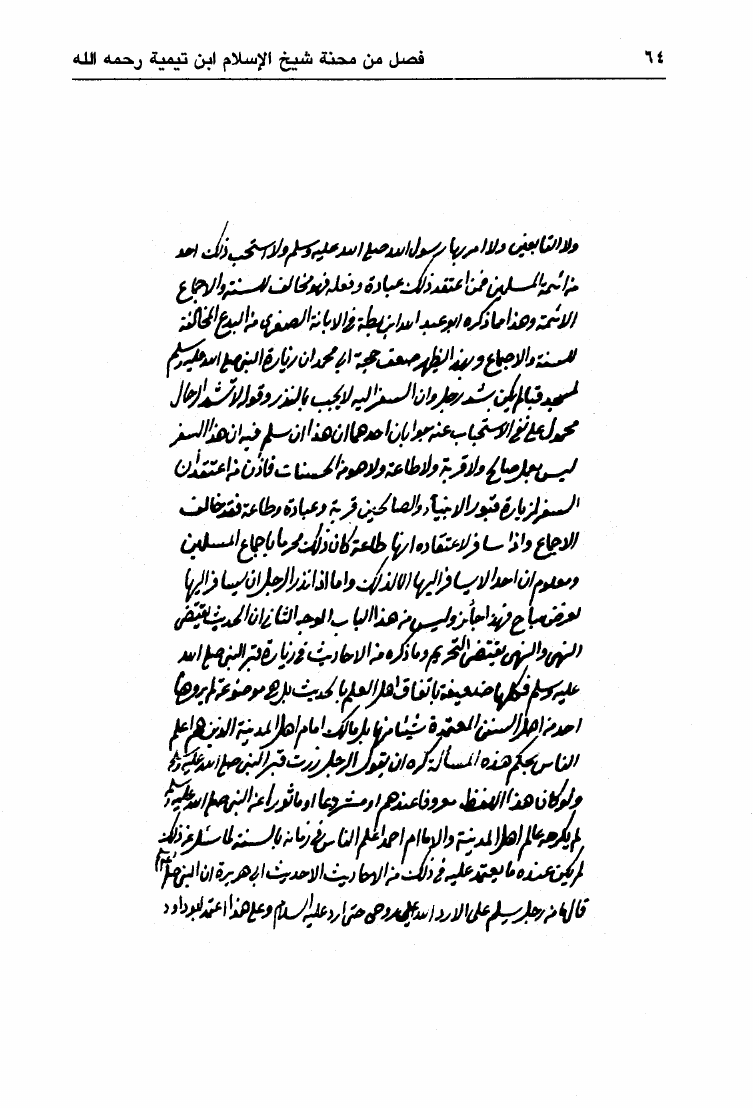 ٦٤ فصل من محنة شيخ الإسلام ابن تيمية رحمه الله
ولا التابعين ولا امر بها رسول الله صلى الله عليه وسلم ولا استحب ذلك احد
من ائمة المسلمين فمن اعتقد ذلك عبادة وفعله فهو مخالف للسنة والاجماع
الائمة وهذا ما ذكره ابو عبد الله ابن بطة في الابانة الصغرى من البدع المخالفة
للسنة والاجماع وبهذا يظهر ضعف حجة ابي محمد ان زيارة النبي صلى الله عليه وسلم
لمسجد قبا لم يكن بشد رحل وان السفر اليه لا يجب بالنذر وقوله لا تشد الرحال
محمول على نفي الاستحباب عنه جوابان احدهما ان هذا ان سلم فيه ان هذا السفر
ليس بعمل صالح ولا قربة ولا طاعة ولا هو من الحسنات فاذن من اعتقد ان
السفر لزيارة قبور الانبياء والصالحين قربة وعبادة وطاعة فقد خالف
الاجماع واذا سافر لاعتقاده انها طاعة كان ذلك محرما باجماع المسلمين
ومعلوم ان احدا لا يسافر اليها الا لذلك واما اذا نذر الرجل ان يسافر اليها
لغرض مباح فهذا جائز وليس من هذا الباب الوجه الثاني ان الحديث يقتضي
النهي والنهي يقتضي التحريم وما ذكره من الاحاديث في زيارة قبر النبي صلى الله
عليه وسلم فكلها ضعيفة باتفاق اهل العلم بالحديث بل هي موضوعة لم يروها
احد من اهل السنن المعتمدة شيئا منها بل مالك امام اهل المدينة الذين هم اعلم
الناس بحكم هذه المسألة كره ان يقول الرجل زرت قبر النبي صلى الله عليه وسلم
ولو كان هذا اللفظ معروفا عندهم او مشروعا او ماثورا عن النبي صلى الله عليه وسلم
لم يكرهه عالم اهل المدينة والامام احمد اعلم الناس في زمانه بالسنة لما سئل عن ذلك
لم يكن عنده ما يعتمد عليه في ذلك من الاحاديث الا حديث ابي هريرة ان النبي صلى
قال ما من رجل يسلم علي الا رد الله علي روحي حتى ارد عليه السلام وعلى هذا اعتمد ابو داود